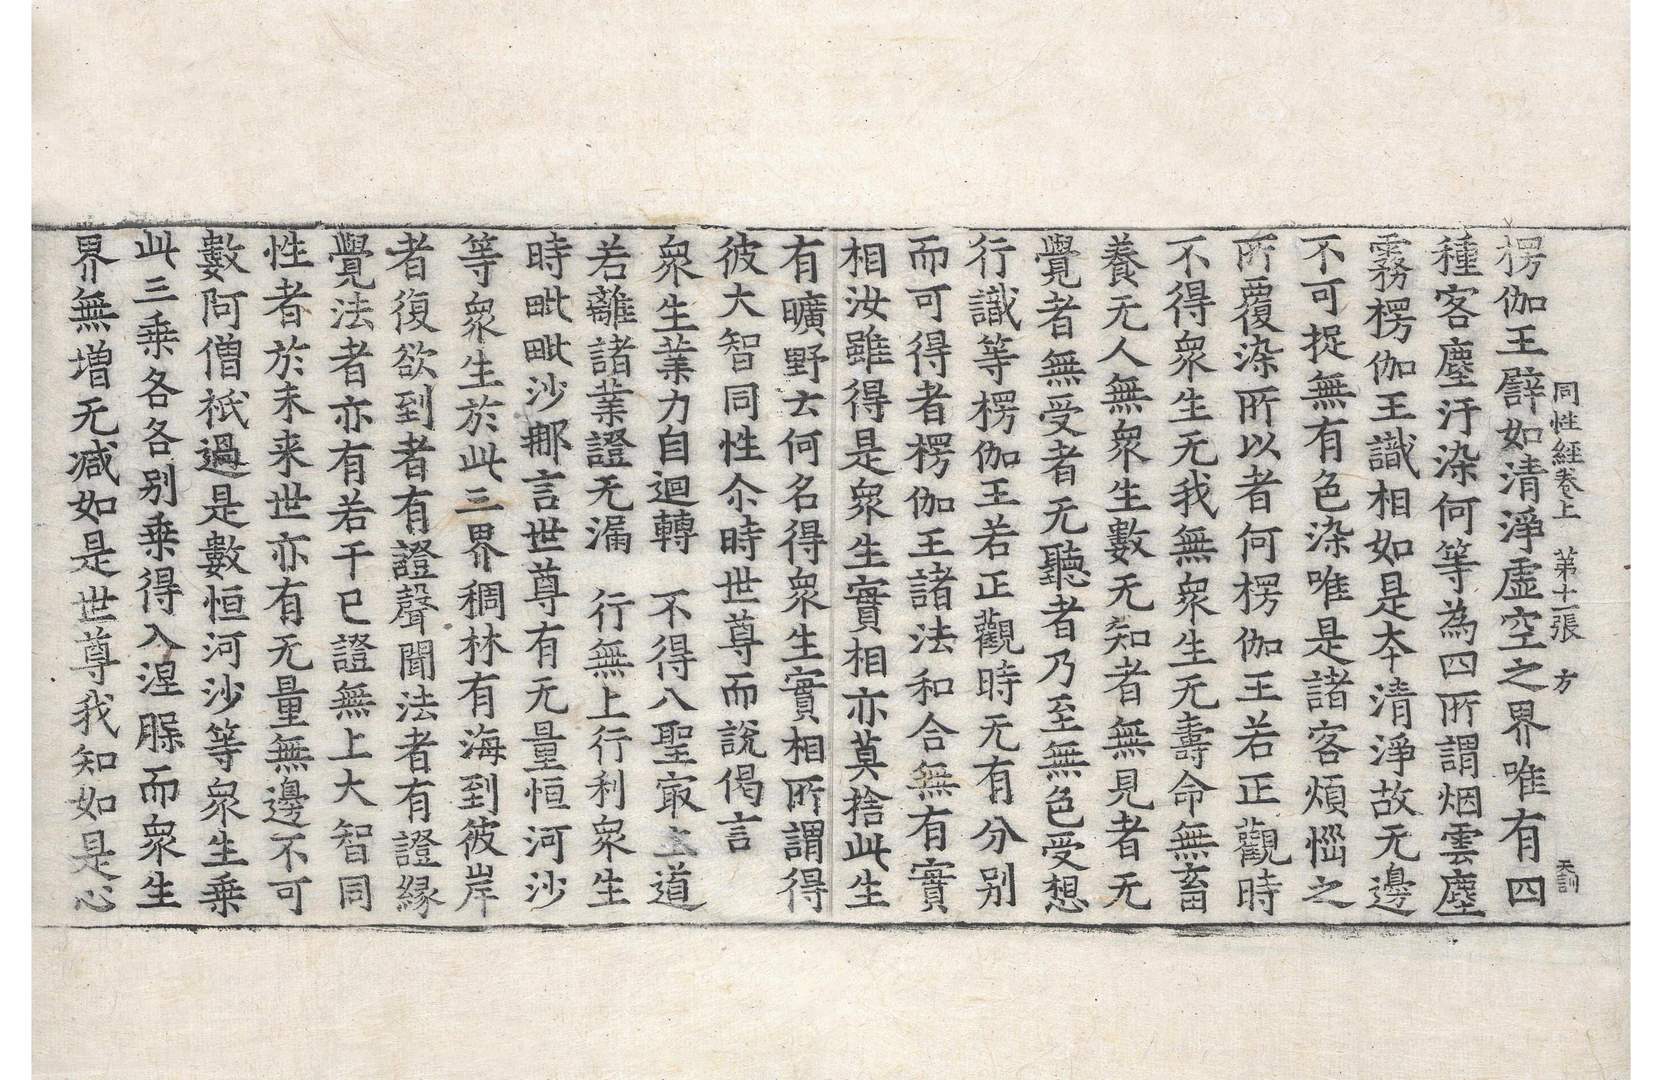 同性經卷上 第十一張 方
天訓
楞伽王譬如清淨虛空之界唯有四
種客塵汙染何等為四所謂烟雲塵
霧楞伽王識相如是夲清淨故无邊
不可捉無有色染唯是諸客煩惱之
所覆染所以者何楞伽王若正觀時
不得衆生无我無衆生无壽命無畜
養无人無衆生數无知者無見者无
覺者無受者无聽者乃至無色受想
行識等楞伽王若正觀時无有分别
而可得者楞伽王諸法和合無有實
相汝雖得是衆生實相亦莫捨此生
有曠野云何名得衆生實相所謂得
彼大智同性尒時世尊而說偈言
衆生業力自迴轉 不得八聖㝡上道
若離諸業證无漏 行無上行利衆生
時毗毗沙𨚗言世尊有无量恒河沙
等衆生於此三界稠林有海到彼岸
者復欲到者有證聲聞法者有證縁
覺法者亦有若干已證無上大智同
性者於未来世亦有无量無邊不可
數阿僧祇過是數恒河沙等衆生乗
此三乗各各别乗得入涅槃而衆生
界無增无减如是世尊我知如是心